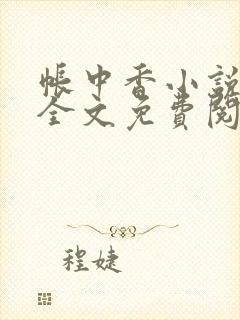 帳中香小說
全文免費閱
程婕